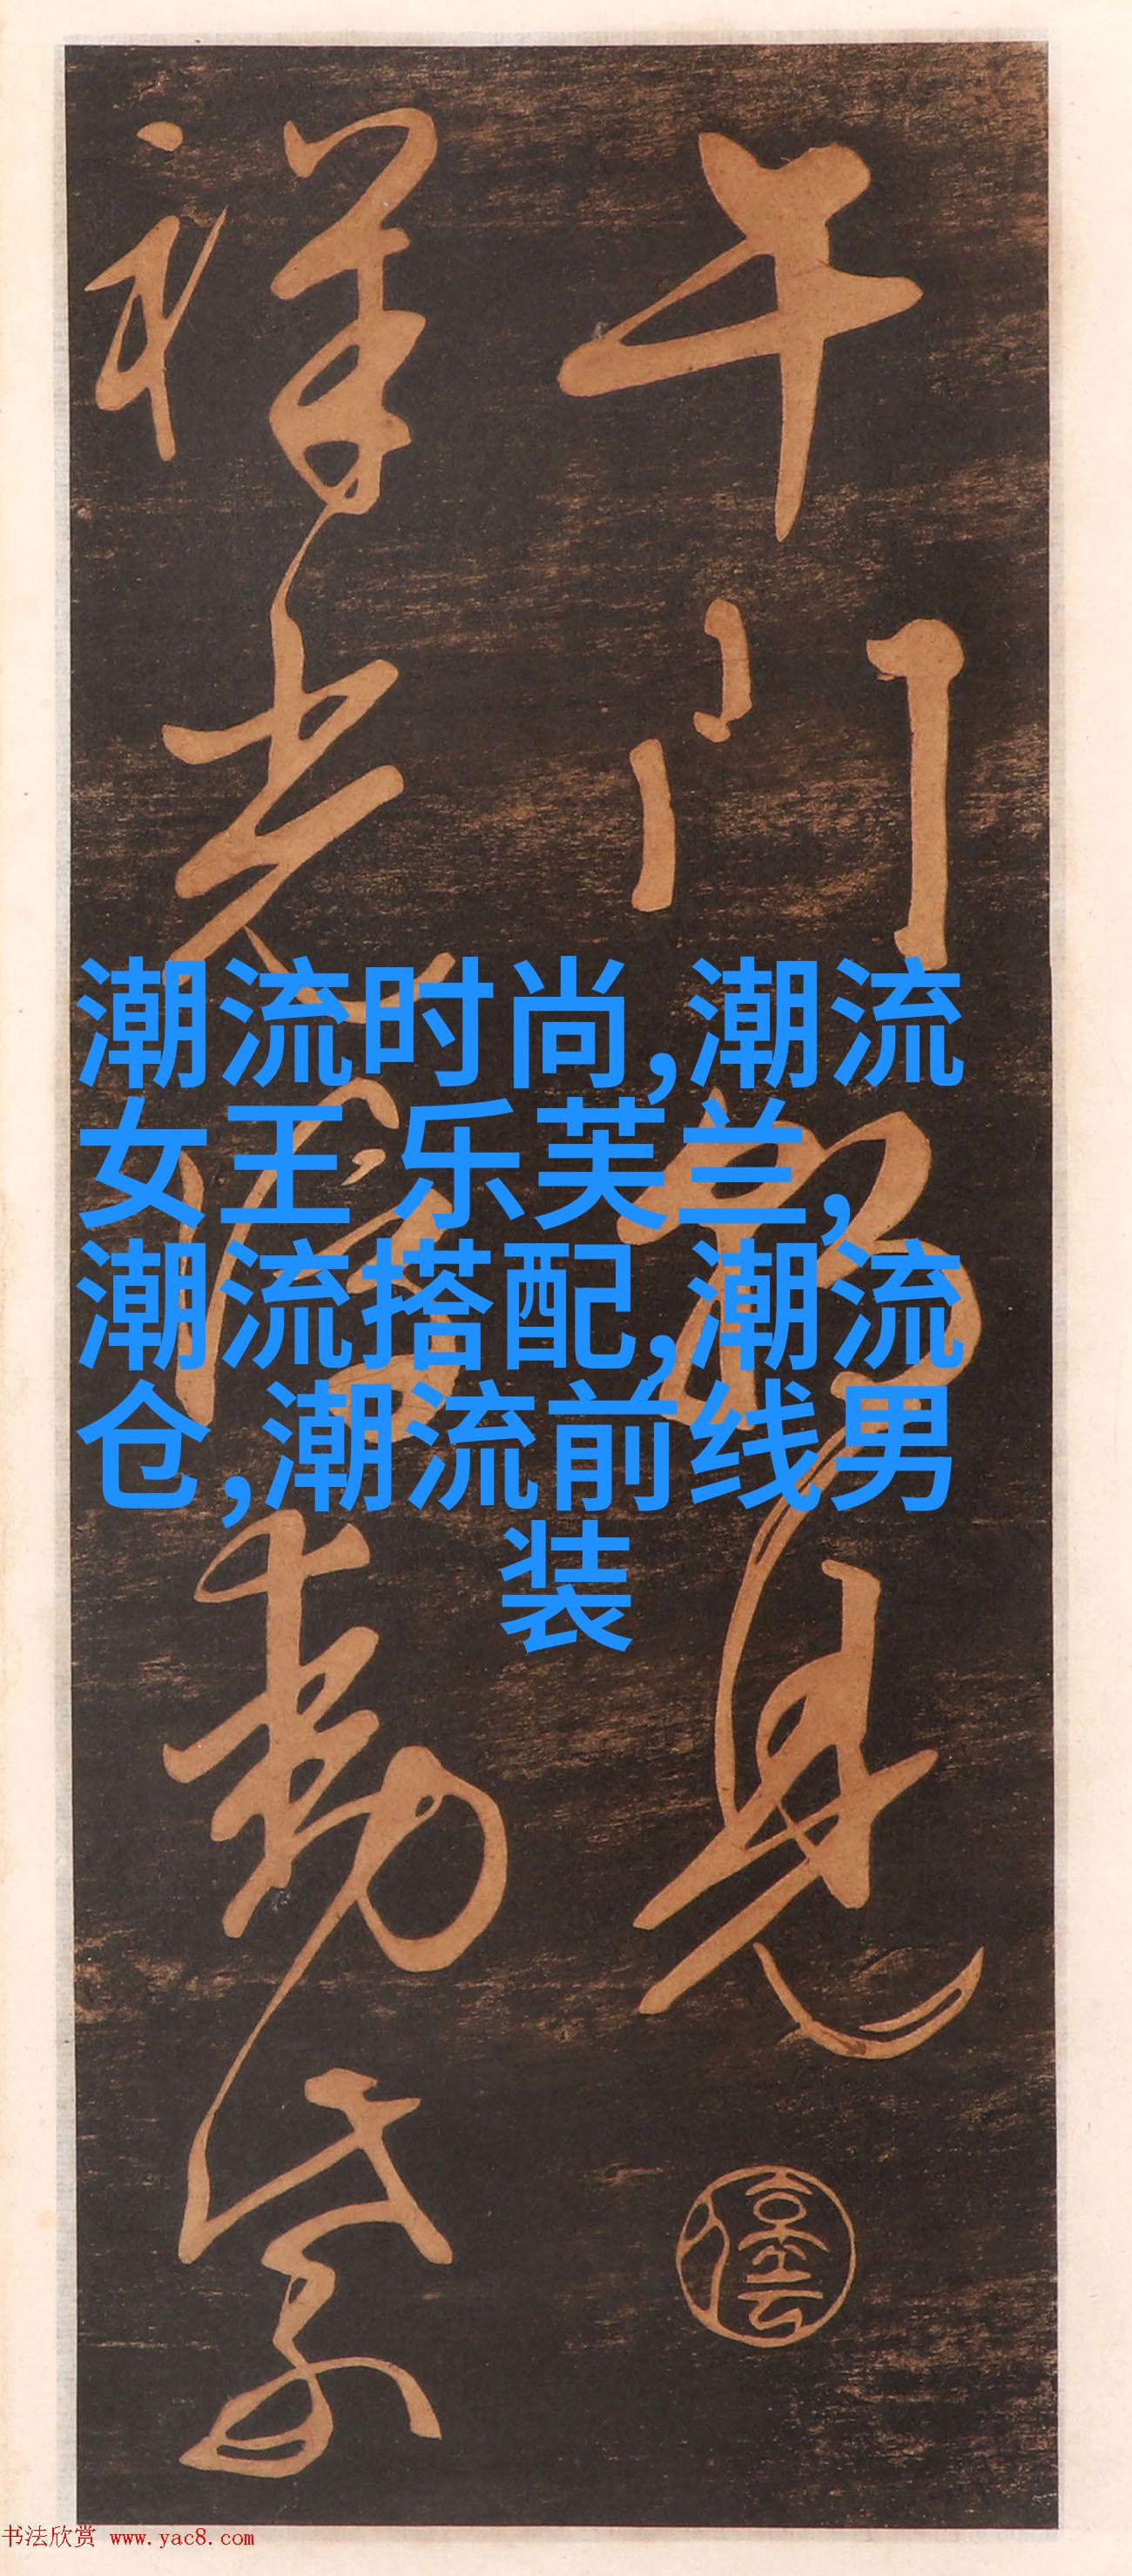 午門見
祥光動紫
潮流时尚,潮流
女王 乐芙兰,
潮流搭配,潮流
仓,潮流前线男
装
书法欣赏 www.yac8.com